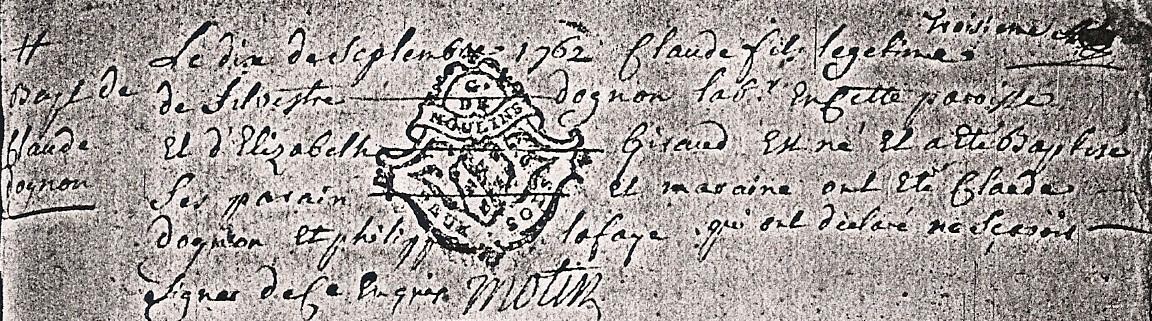 troisieme
# Le dix de septembre 1762 Claude fils legetime
Bapt de de Silvestre dognon lab.r en Cette paroisse
Claude Et d'Elizabeth Giraud Est né Et a eté Baptisé
dognon Ses parain et maraine ont Eté Claude
dognon Et philippe lafaye qui ont déclaré ne sçavoir
signer de Ce Enquis Motin
G. DE
MOULINS
AUX SOLS